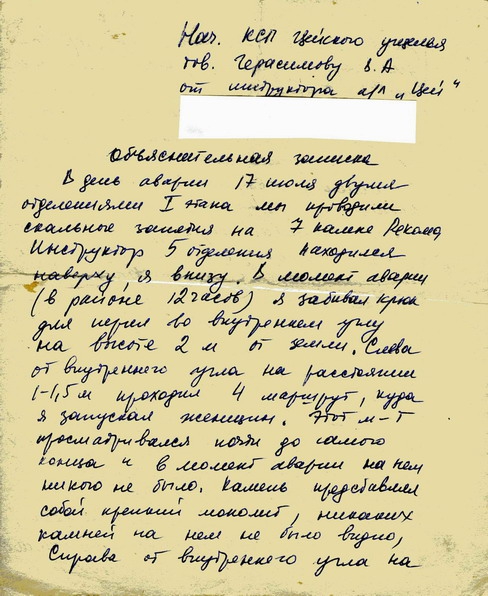 Нач. КСП Цейского ущелья
тов. Герасимову В.А
от инструктора а/л "Цей"
Объяснительная записка
В день аварии 17 июля двумя
отделениями I этапа мы проводили
скальные занятия на 7 камне Рекома,
Инструктор 5 отделения находился
наверху, я внизу. В момент аварии
(в районе 12 часов) я забивал крюк
для перил во внутреннем углу
на высоте 2 м от земли. Слева
от внутреннего угла на расстоянии
1-1,5 м проходил 4 маршрут, куда
я запускал женщин. Этот м-т
просматривался почти до самого
конца и в момент аварии на нем
никого не было. Камень представлял
собой крепкий монолит, никаких
камней на нем не было видно,
Справа от внутреннего угла на